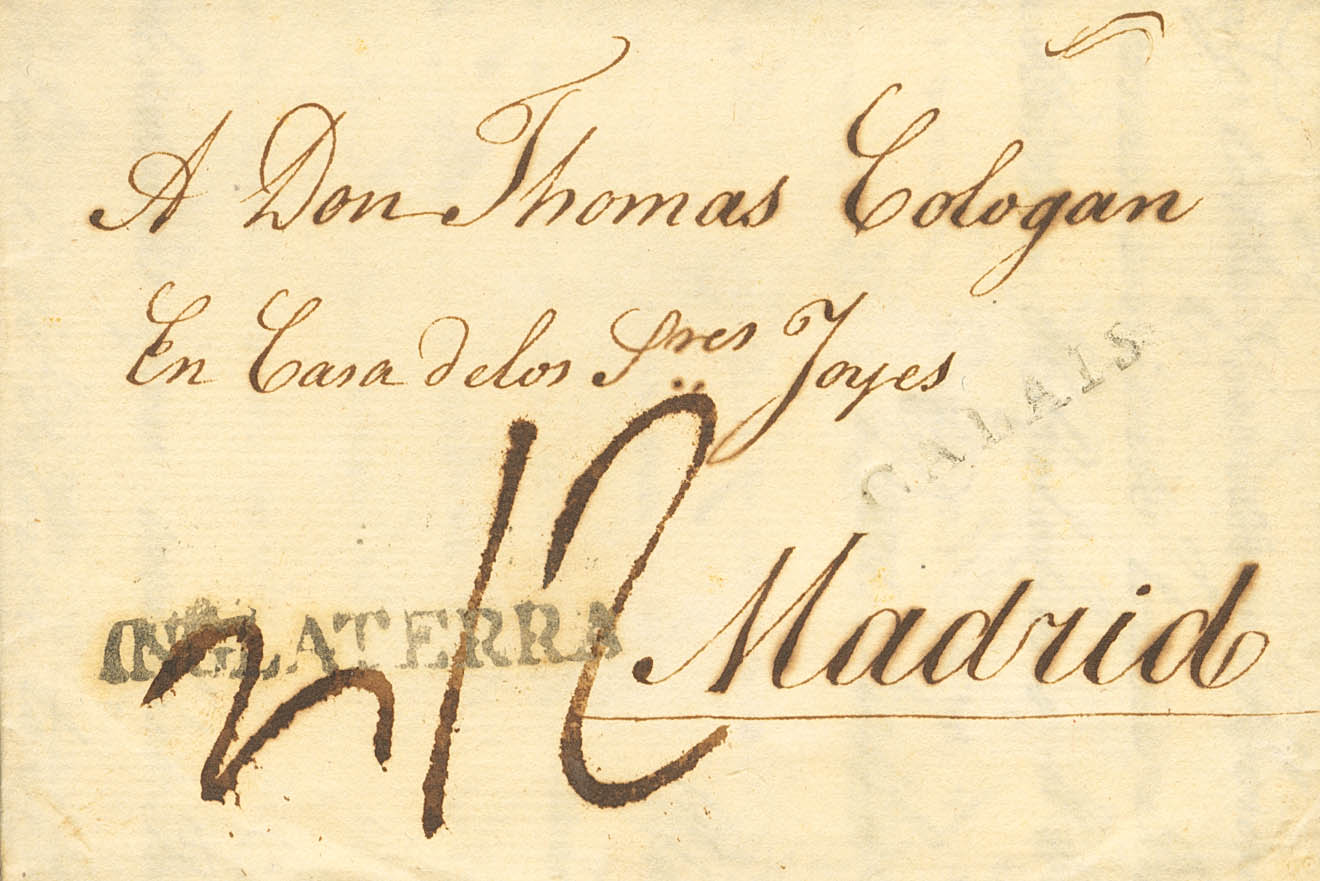 A Don Thomas Cologan
En Casa delos Sres Joyes
CALAIS
12
INGLATERRA
Madrid